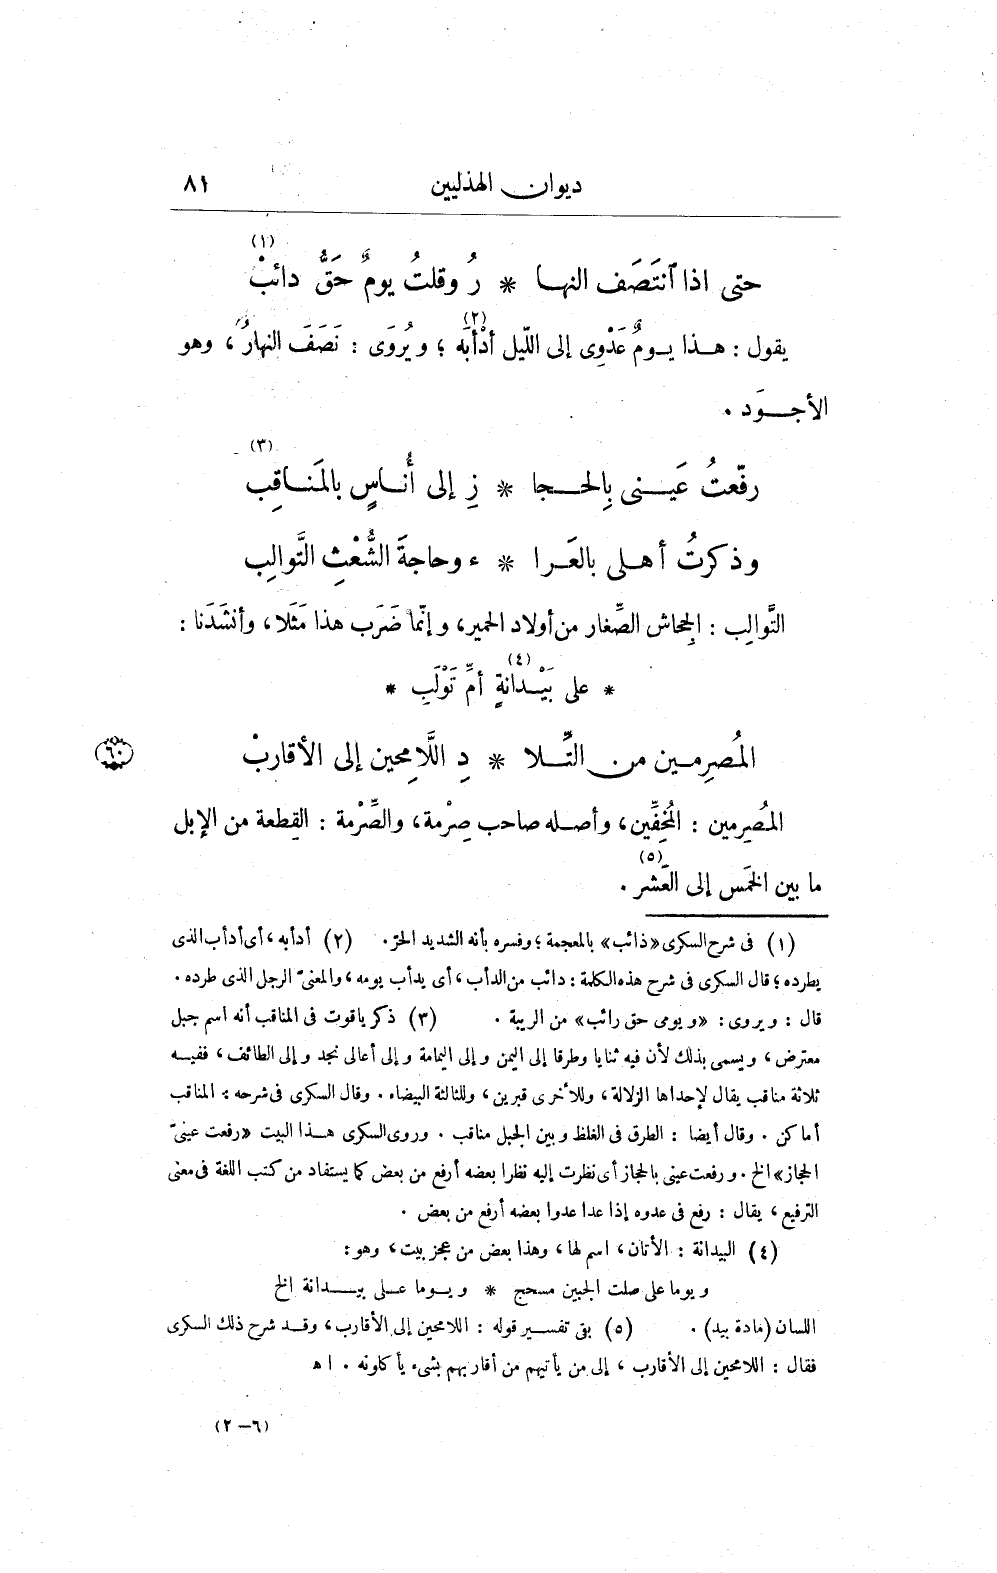 ديوان الهذليين ٨١
(١)
حتى اذا ٱنتَصَف النهـا * رُ وقلتُ يومٌ حَقُّ دائبْ
(٢)
يقول : هـذا يـومٌ عَدْوِى إلى اللّيل أدْأبَه ؛ ويُروَى : نَصَفَ النهارُ ، وهو
الأجـوَد .
(٣)
رفّعتُ عَيـنى بِالحـجا * زِ إلى أُنـاسٍ بالمَنـاقِب
وذكرتُ أهلى بالعَـرا * ء وحاجةَ الشُّعْثِ التَّوالِب
التَّوالِب : الجِحاش الصِّغار من أولاد الحمير، وإنّما ضَرَب هذا مَثَلا، وأنشَدَنا :
(٤)
* على بَيْـدانةٍ أمِّ تَوْلَبِ *
المُصرِمـين مـن التِّـلا * دِ اللَّامِحين إلى الأقاربْ
٦٠
المُصرِمين : المُخِفِّين، وأصـله صاحب صِرْمة، والصِّرْمة : القِطعة من الإبل
(٥)
ما بين الخمَس إلى العَشر .
(١) فى شرح السكرى «ذائب» بالمعجمة ؛ وفسره بأنه الشديد الحرّ. (٢) أدأبه ، أى أدأب الذى
يطرده ؛ قال السكرى فى شرح هذه الكلمة : دائب من الدأب ، أى يدأب يومه ، والمعنىّ الرجل الذى طرده .
قال : ويروى : «ويومى حق رائب» من الريبة . (٣) ذكر ياقوت فى المناقب أنه اسم جبل
معترض ، ويسمى بذلك لأن فيه ثنايا وطرقا إلى اليمن وإلى اليمامة وإلى أعالى نجد وإلى الطائف ، ففيـه
ثلاثة مناقب يقال لإحداها الزلالة ، وللأخرى قبرين ، وللثالثة البيضاء . وقال السكرى فى شرحه : المناقب
أماكن . وقال أيضا : الطرق فى الغلظ وبين الجبل مناقب . وروى السكرى هـذا البيت «رفعت عينىّ
الحجاز» الخ . ورفعت عينى بالحجاز أى نظرت إليه نظرا بعضه أرفع من بعض كما يستفاد من كتب اللغة فى معنى
الترفيع ، يقال : رفع فى عدوه إذا عدا عدوا بعضه أرفع من بعض .
(٤) البيدانة : الأتان، اسم لها، وهذا بعض من عجز بيت، وهو :
ويوما على صلت الجبين مسحج * ويـوما عـلى بيـدانة الخ
اللسان (مادة بيد) . (٥) بقى تفسير قوله : اللامحين إلى الأقارب، وقـد شرح ذلك السكرى
فقال : اللامحين إلى الأقارب ، إلى من يأتيهم من أقاربهم بشىء يأكلونه . اه
(٢ – ٦)